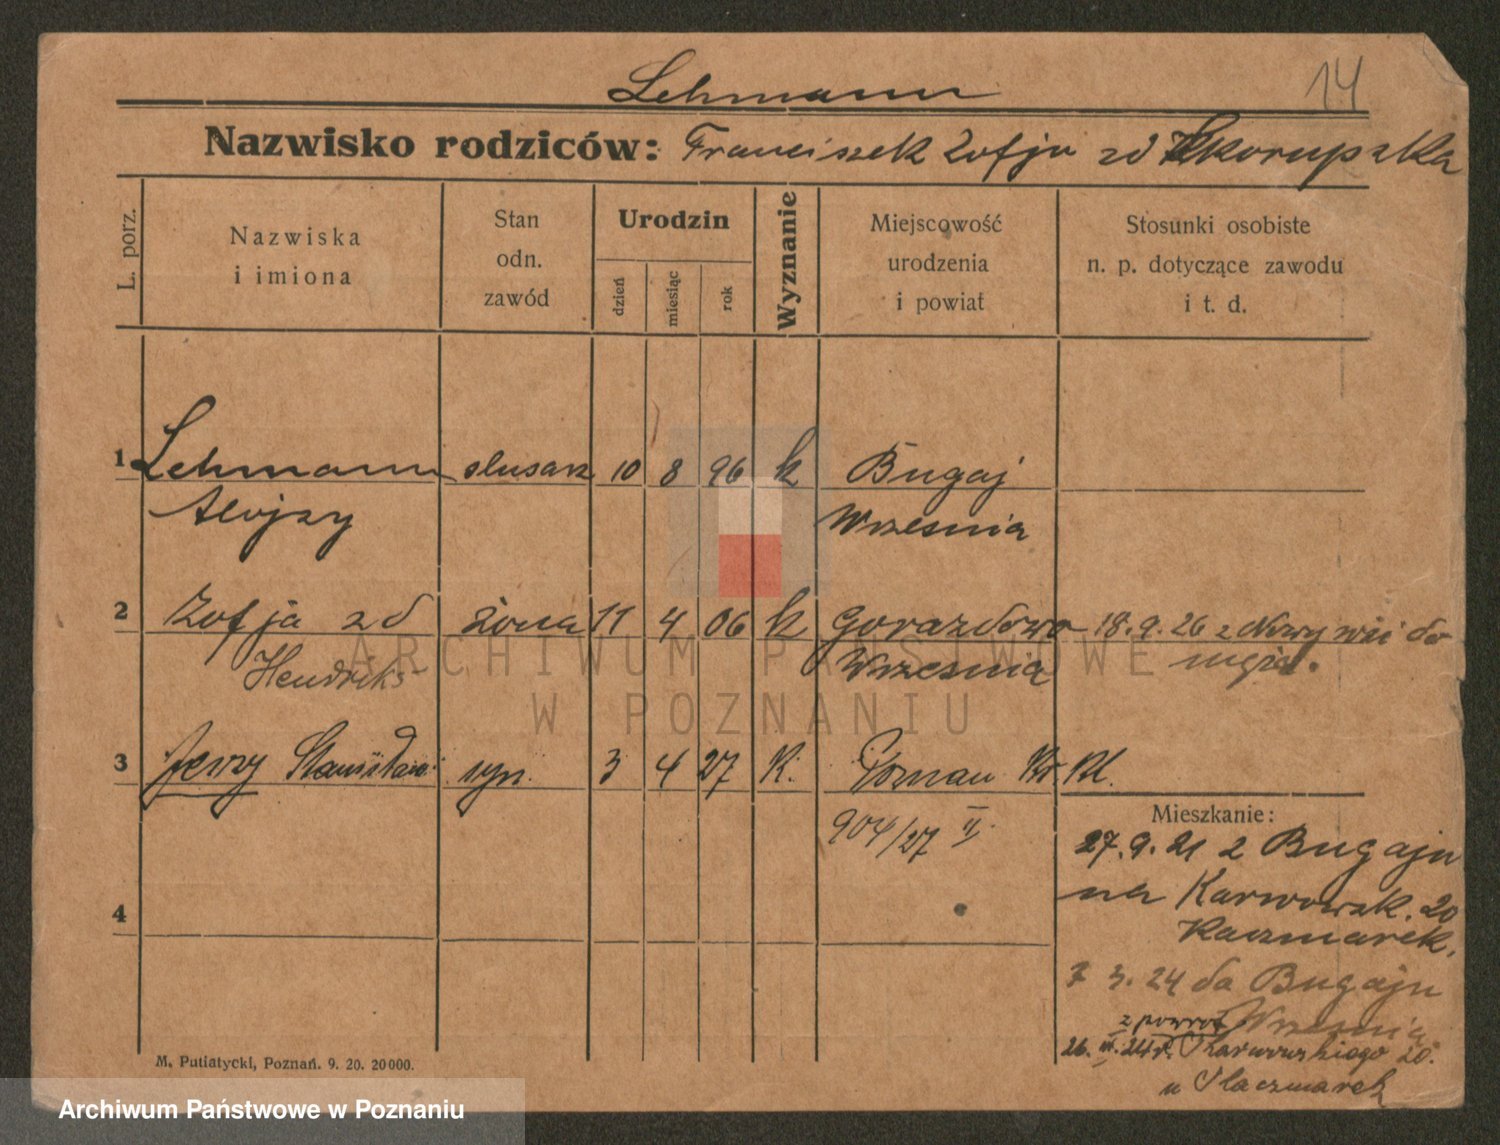 14
Lehmann
Nazwisko rodziców: Franciszek Zofja zd Skorupska
L. porz.
Nazwiska i imiona
Stan odn. zawód
Urodzin
dzień
miesiąc
rok
Wyznanie
Miejscowość urodzenia i powiat
Stosunki osobiste n. p. dotyczące zawodu i t. d.
1 Lehmann slusarz 10 8 96 k Bugaj
Alojzy Wrzesnia
2 Zofja zd żona 11 4 06 k Gorazdowo 18.9.26 z Nowy wsi do
Hendriks Wrzesnia męża.
3 Jerzy Stanisław syn. 3 4 27 K. Poznan
904/27 II.
Mieszkanie:
27.9.21 z Bugaju
na Karwowsk. 20
Kaczmarek.
4
7 3.24 do Bugaju
Wrzesnia
z powrot
26. 24r. Karwowskiego 20.
u Kaczmarek
M. Putiatycki, Poznań. 9. 20. 20000.
ARCHIWUM PAŃSTWOWE
W POZNANIU
Archiwum Państwowe w Poznaniu